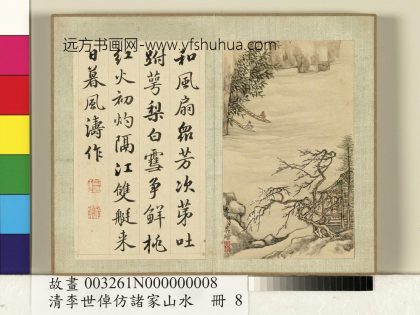 远方书画网-www.yfshuhua.com
和風扇眾芳次第吐
跗萼梨白雪争鮮桃
紅火初灼隔江雙艇来
日暮風濤作
故畫 003261N000000008
清李世倬仿諸家山水 冊 8